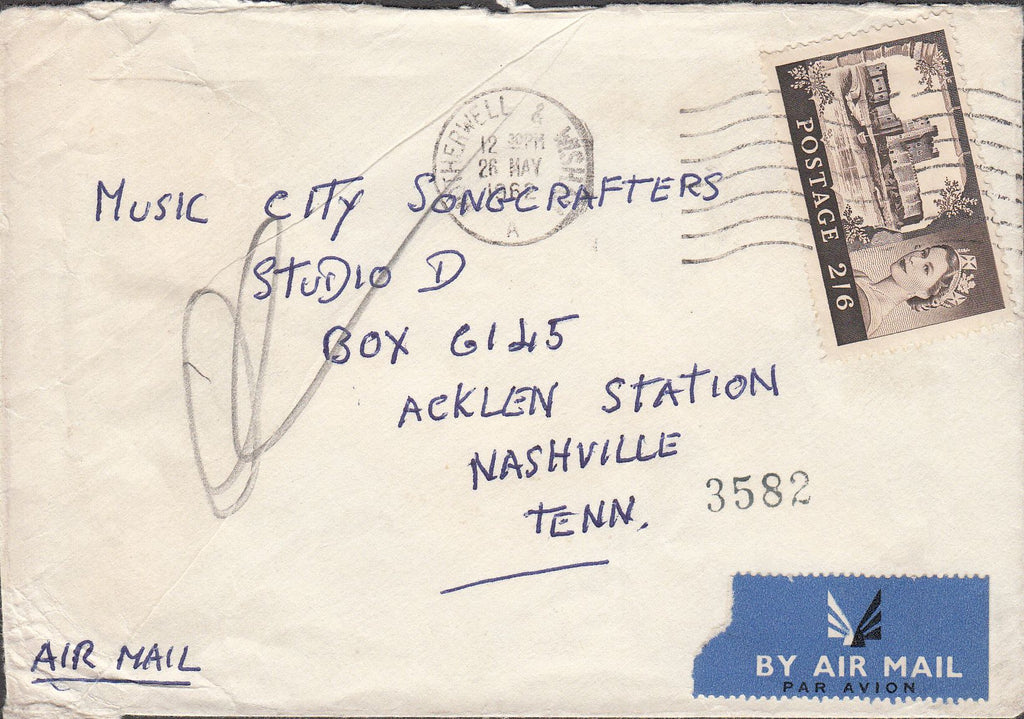 HERWELL & WISH
12 30PM
26 MAY
196
A
POSTAGE 2/6
MUSIC CITY SONGCRAFTERS
STUDIO D
BOX 6145
ACKLEN STATION
NASHVILLE
TENN.
3582
AIR MAIL
BY AIR MAIL
PAR AVION